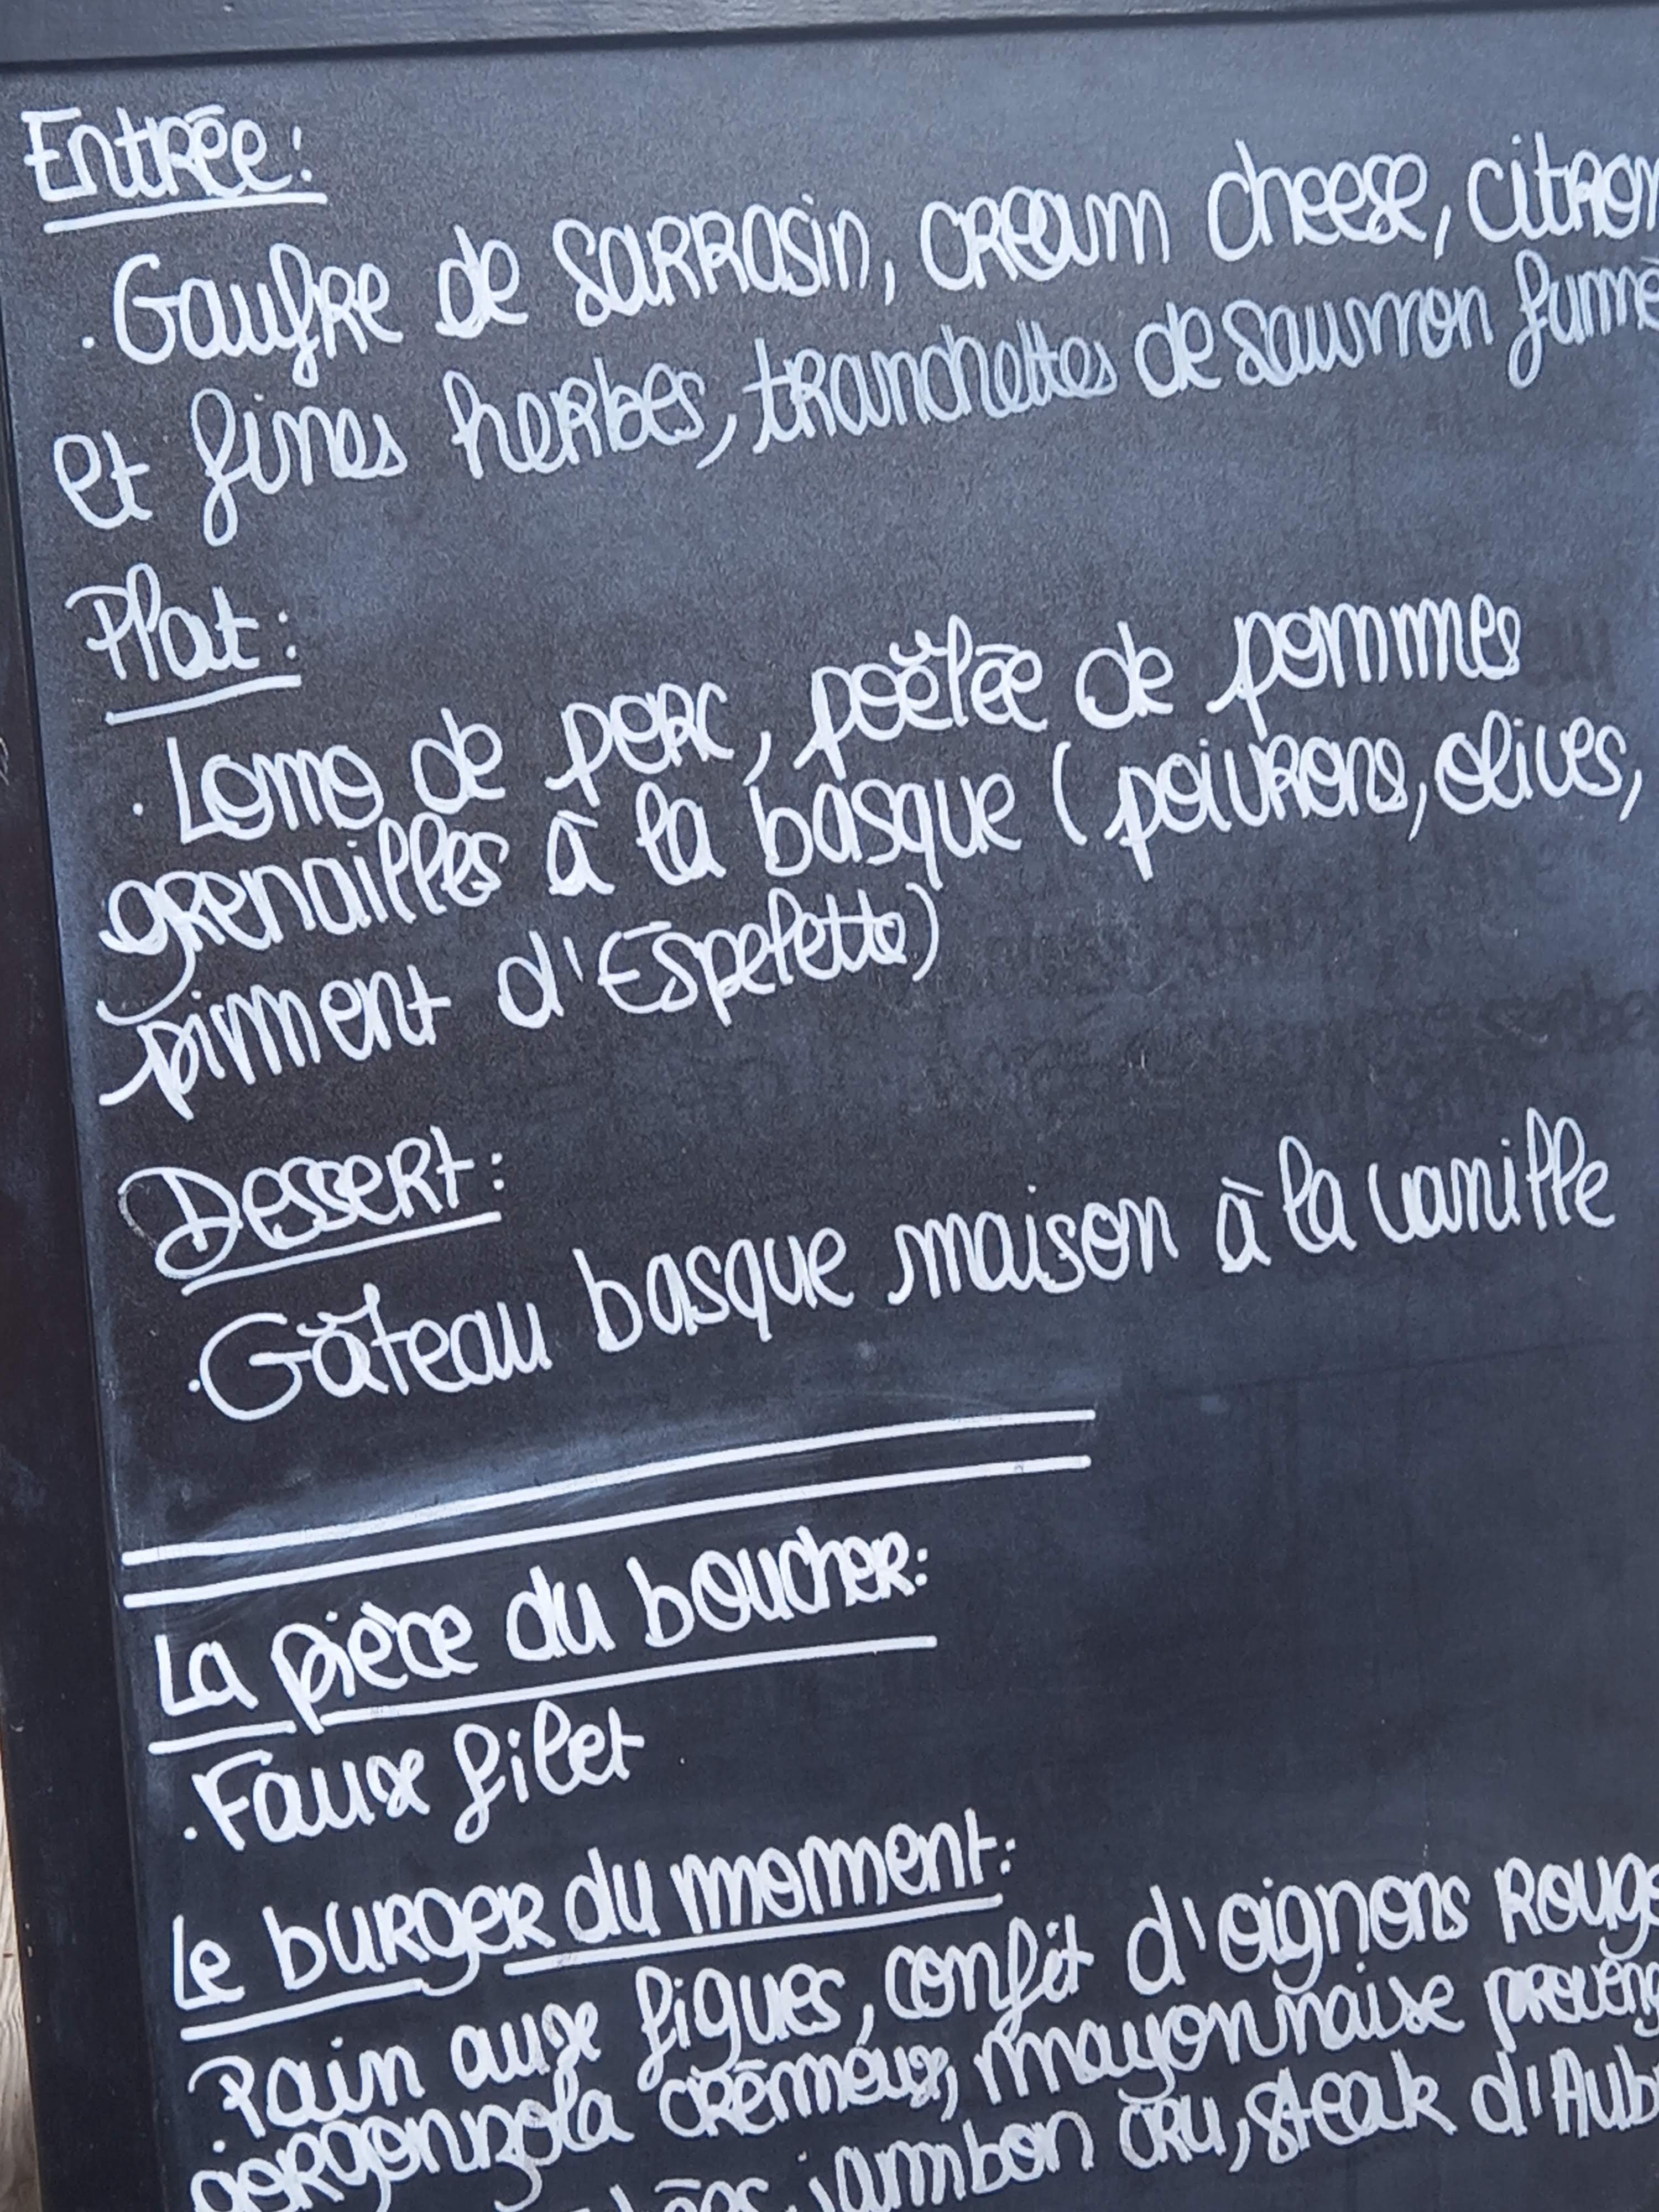 Entrée:
· Gaufre de sarrasin, cream cheese, citron
et fines herbes, tranchettes de saumon fumé
Plat:
· Lomo de porc, poêlée de pommes
grenailles à la basque (poivrons, olives,
piment d'Espelette)
Dessert:
· Gâteau basque maison à la vanille
La pièce du boucher:
· Faux filet
Le burger du moment:
· Pain aux figues, confit d'oignons rouge
gorgonzola crémeux, mayonnaise provenç
jambon cru, steak d'Aub